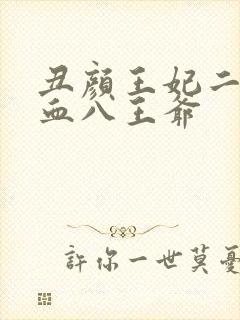 丑顏王妃二
血八王爺
許你一世莫憂